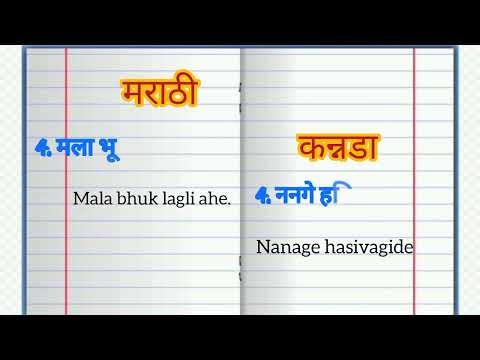 मराठी
4. मला भू
Mala bhuk lagli ahe.
कन्नडा
4. ननगे हि
Nanage hasivagide